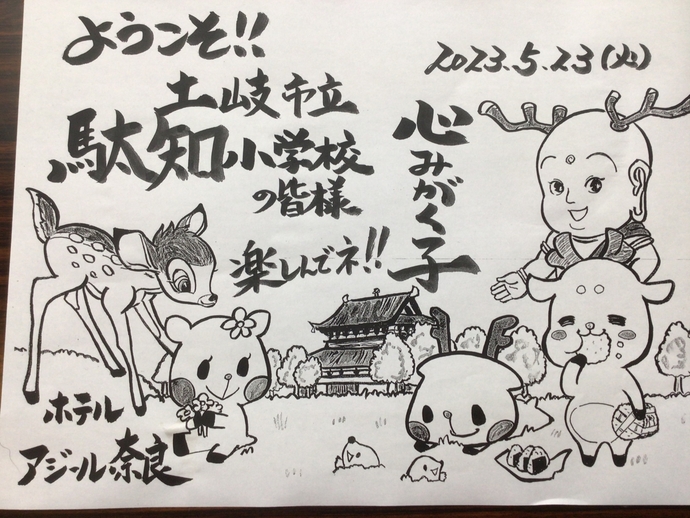 ようこそ!!
2023.5.23(火)
土岐市立
駄知小学校
の皆様
心みがく子
楽しんでネ!!
ホテル
アジール奈良